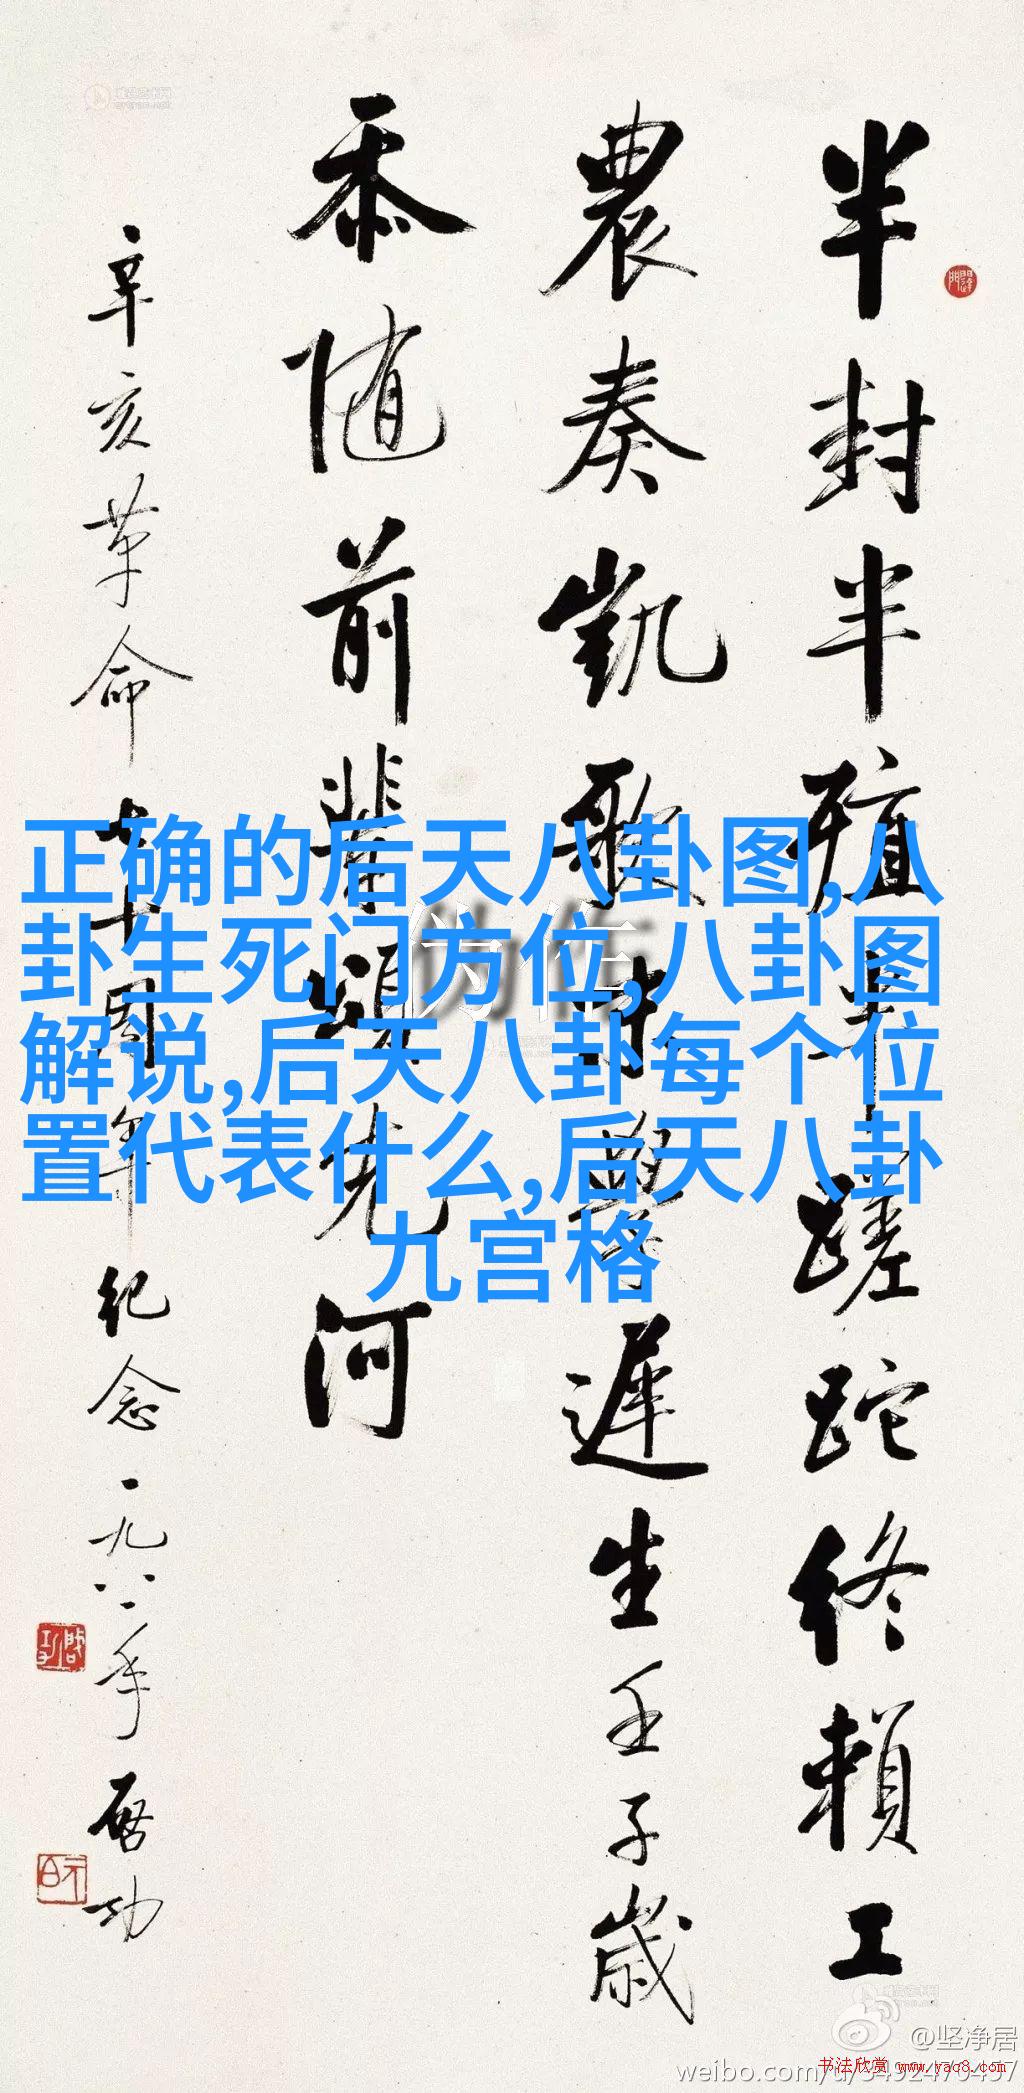 半封半殖半蹉跎終賴工
農奏凱歌
遲生壬子歲
忝随前輩頌先河
辛亥革命七十周年纪念一九八一年
启功
正确的后天八卦图,八
卦生死门方位,八卦图
解说,后天八卦每个位
置代表什么,后天八卦
九宫格
伪作
@坚净居
weibo.com/u/3492470437
书法欣赏 www.yac8.com